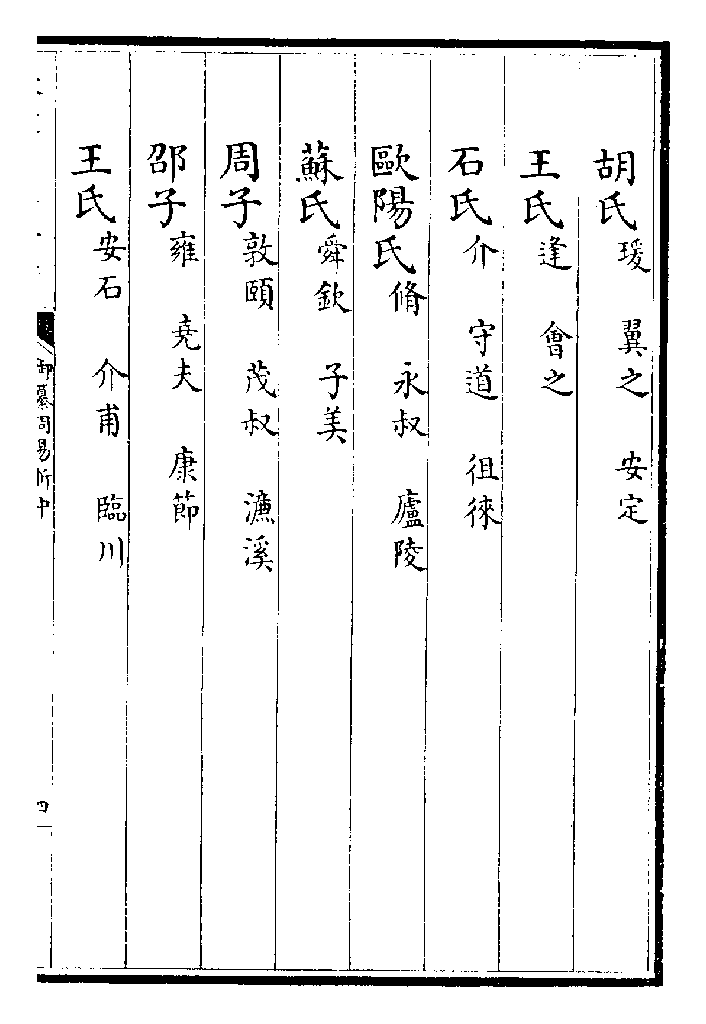 胡氏瑗 翼之 安定
王氏逢 會之
石氏介 守道 徂徠
歐陽氏脩 永叔 廬陵
蘇氏舜欽 子美
周子敦頤 茂叔 濂溪
邵子雍 堯夫 康節
王氏安石 介甫 臨川
御纂周易折中
四